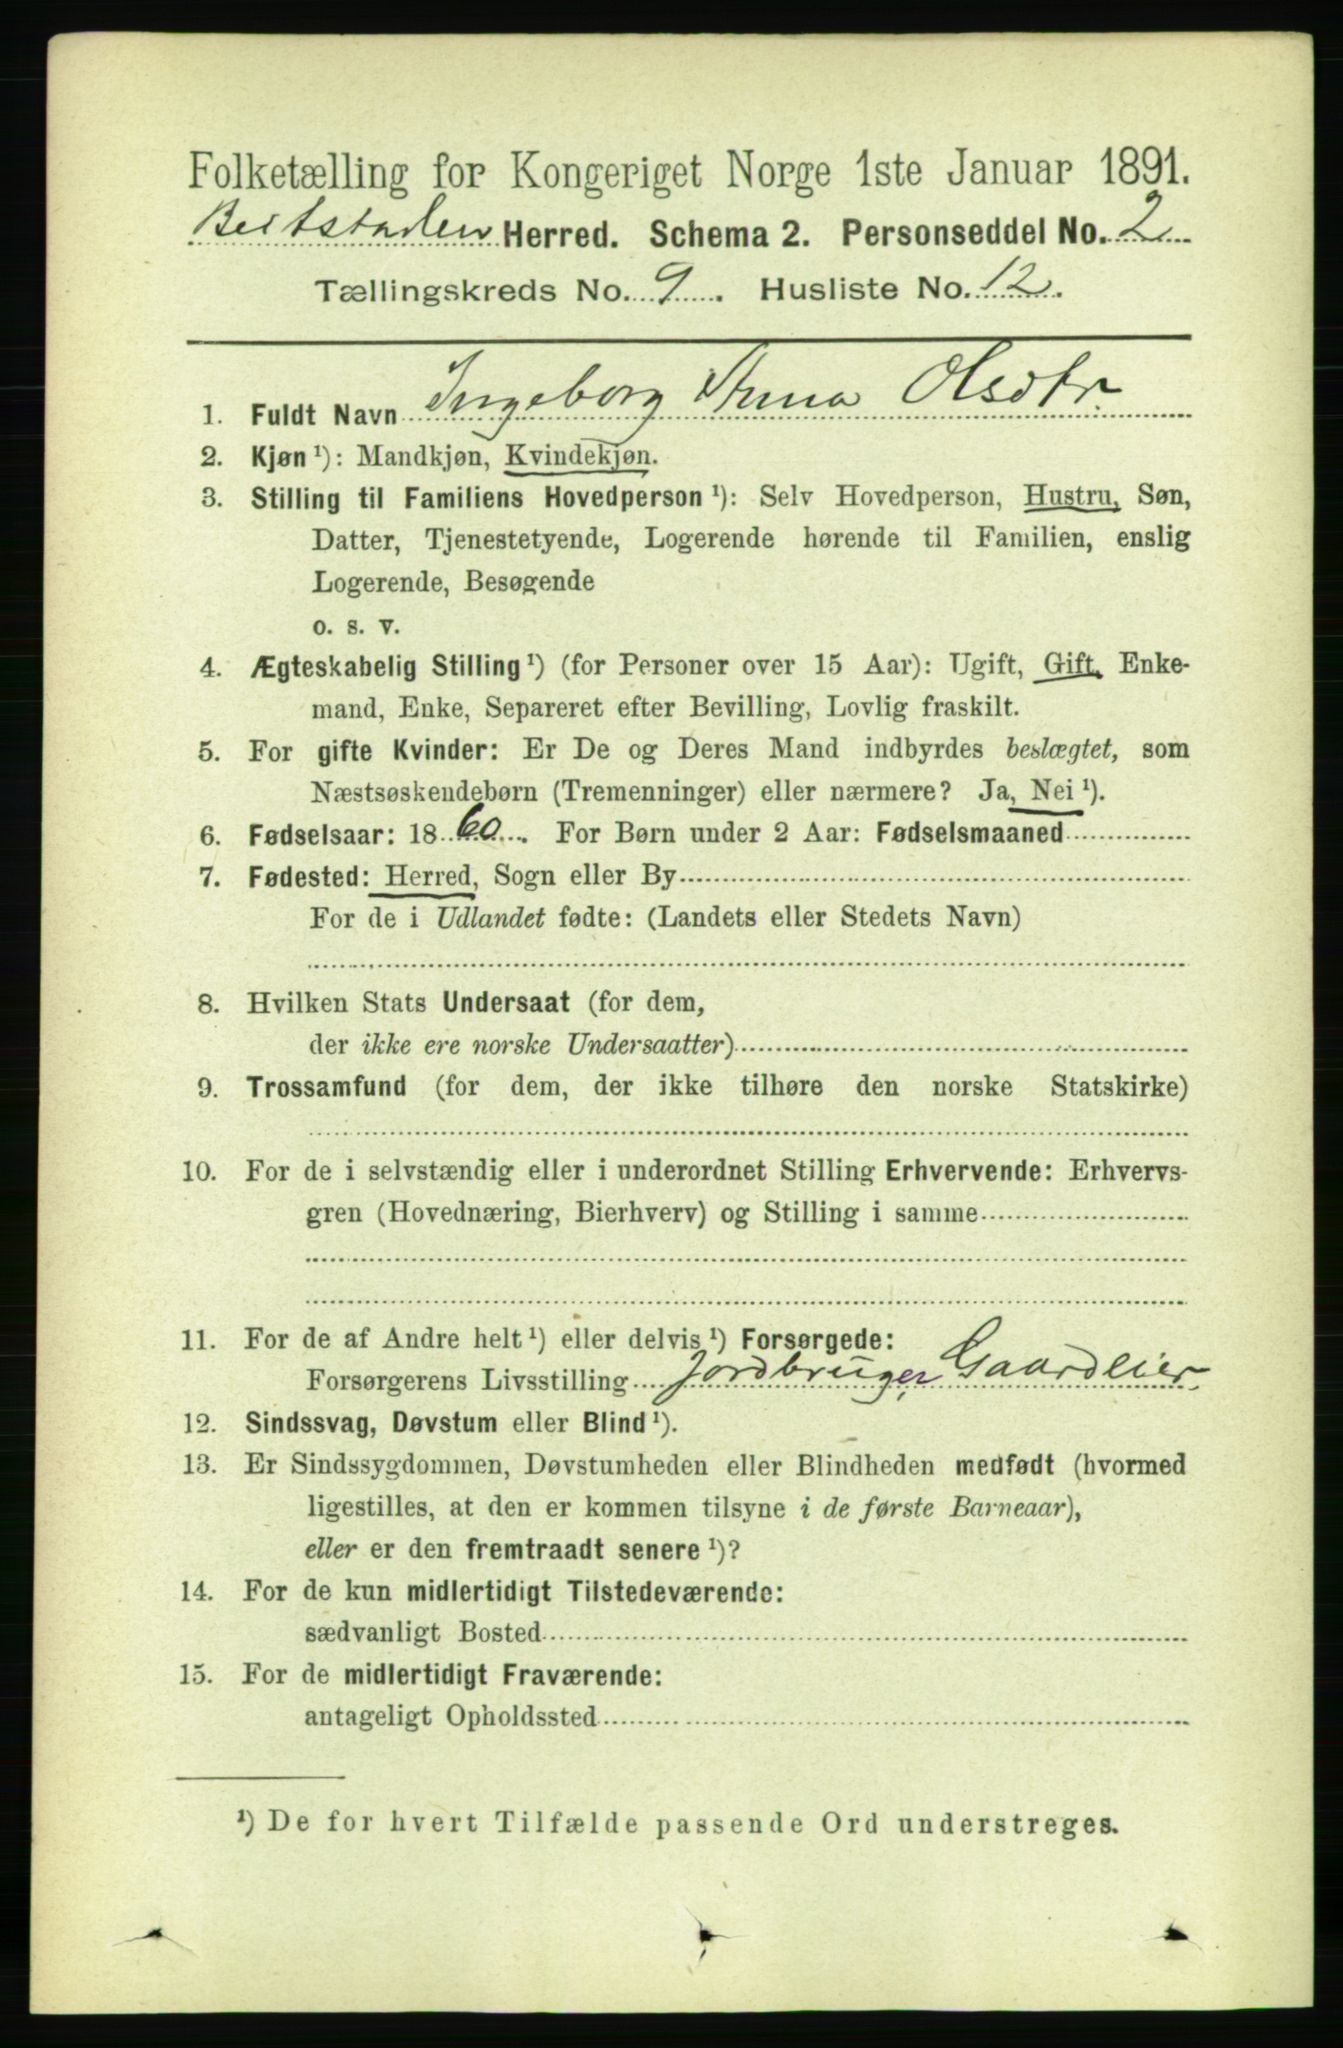 Folketælling for Kongeriget Norge 1ste Januar 1891.
Beitstaden Herred. Schema 2. Personseddel No. 2
Tællingskreds No. 9. Husliste No. 12.
1. Fuldt Navn Ingeborg Anna Olsdtr.
2. Kjøn ¹): Mandkjøn, Kvindekjøn.
3. Stilling til Familiens Hovedperson ¹): Selv Hovedperson, Hustru, Søn,
Datter, Tjenestetyende, Logerende hørende til Familien, enslig
Logerende, Besøgende
o. s. v.
4. Ægteskabelig Stilling ¹) (for Personer over 15 Aar): Ugift, Gift, Enke-
mand, Enke, Separeret efter Bevilling, Lovlig fraskilt.
5. For gifte Kvinder: Er De og Deres Mand indbyrdes beslægtet, som
Næstsøskendebørn (Tremenninger) eller nærmere? Ja, Nei ¹).
6. Fødselsaar: 1860. For Børn under 2 Aar: Fødselsmaaned
7. Fødested: Herred, Sogn eller By
For de i Udlandet fødte: (Landets eller Stedets Navn)
8. Hvilken Stats Undersaat (for dem,
der ikke ere norske Undersaatter)
9. Trossamfund (for dem, der ikke tilhøre den norske Statskirke)
10. For de i selvstændig eller i underordnet Stilling Erhvervende: Erhvervs-
gren (Hovednæring, Bierhverv) og Stilling i samme
11. For de af Andre helt ¹) eller delvis ¹) Forsørgede:
Forsørgerens Livsstilling Jordbruger Gaardeier
12. Sindssvag, Døvstum eller Blind ¹).
13. Er Sindssygdommen, Døvstumheden eller Blindheden medfødt (hvormed
ligestilles, at den er kommen tilsyne i de første Barneaar),
eller er den fremtraadt senere ¹)?
14. For de kun midlertidigt Tilstedeværende:
sædvanligt Bosted
15. For de midlertidigt Fraværende:
antageligt Opholdssted
¹) De for hvert Tilfælde passende Ord understreges.